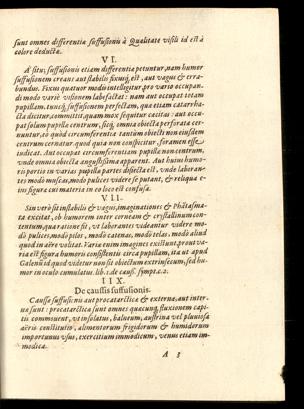 sunt omnes differentiæ suffusionis à Qualitate visili id est à
colore deducta.
VI.
A situ; suffusionis etiam differentia petuntur, nam humor
suffusionem creans aut stabilis fixusq́, est, aut vagus & erra-
bundus. Fixus quatuor modis intelligitur pro vario occupan-
di modo variè visionem labefactat: nam aut occupat totam
pupillam, tuncq́, suffusionem perfectam, qua etiam catarrha-
cta dicitur, committit, quam mox sequitur cacitas: aut occu-
pat solum pupillæ centrum, sicq́, omnia obiecta perforata cer-
nuntur, eò quòd circumferentia tantùm obiecti non eiusdem
centrum cernatur: quod quia non conspicitur, foramen esse,
iudicat. Aut occupat circumferentiam pupillæ non centrum,
vnde omnia obiecta angustissima apparent. Aut huius humo-
ris portio in varias pupillæ partes disiecta est, vnde laboran-
tes modò muscas, modò pulices videre se putant, & reliqua e-
ius figura cui materia in eo loco est confusa.
VII.
Sin verò sit instabilis & vagus, imaginationes & Phãtasma-
ta excitat, ob humorem inter corneam & crystallinum con-
tentum, qua ratione fit, vt laborantes videantur videre mo-
dò pulices, modò pilos, modò catenas, modò telas, modò aliud
quod in aëre volitat. Varia enim imagines existunt, prout va-
ria est figura humoris consistentis circa pupillam, ita vt apud
Galenũ id quod videtur non sit obiectum extrinsecum, sed hu-
mor in oculo cumulatus. lib. 1. de cauß. sympt. c. 2.
IIX.
De caussis suffusionis.
Caussa suffusionis aut procatarctica & externa, aut inter-
na sunt: procatarctica sunt omnes quacunq́, fluxionem capi-
tis commouent, vt insolatus, balneum, austrina vel pluuiosa
aëris constitutio, alimentorum frigidorum & humidorum
importunus vsus, exercitium immodicum, venus etiam im-
modica.
A 3